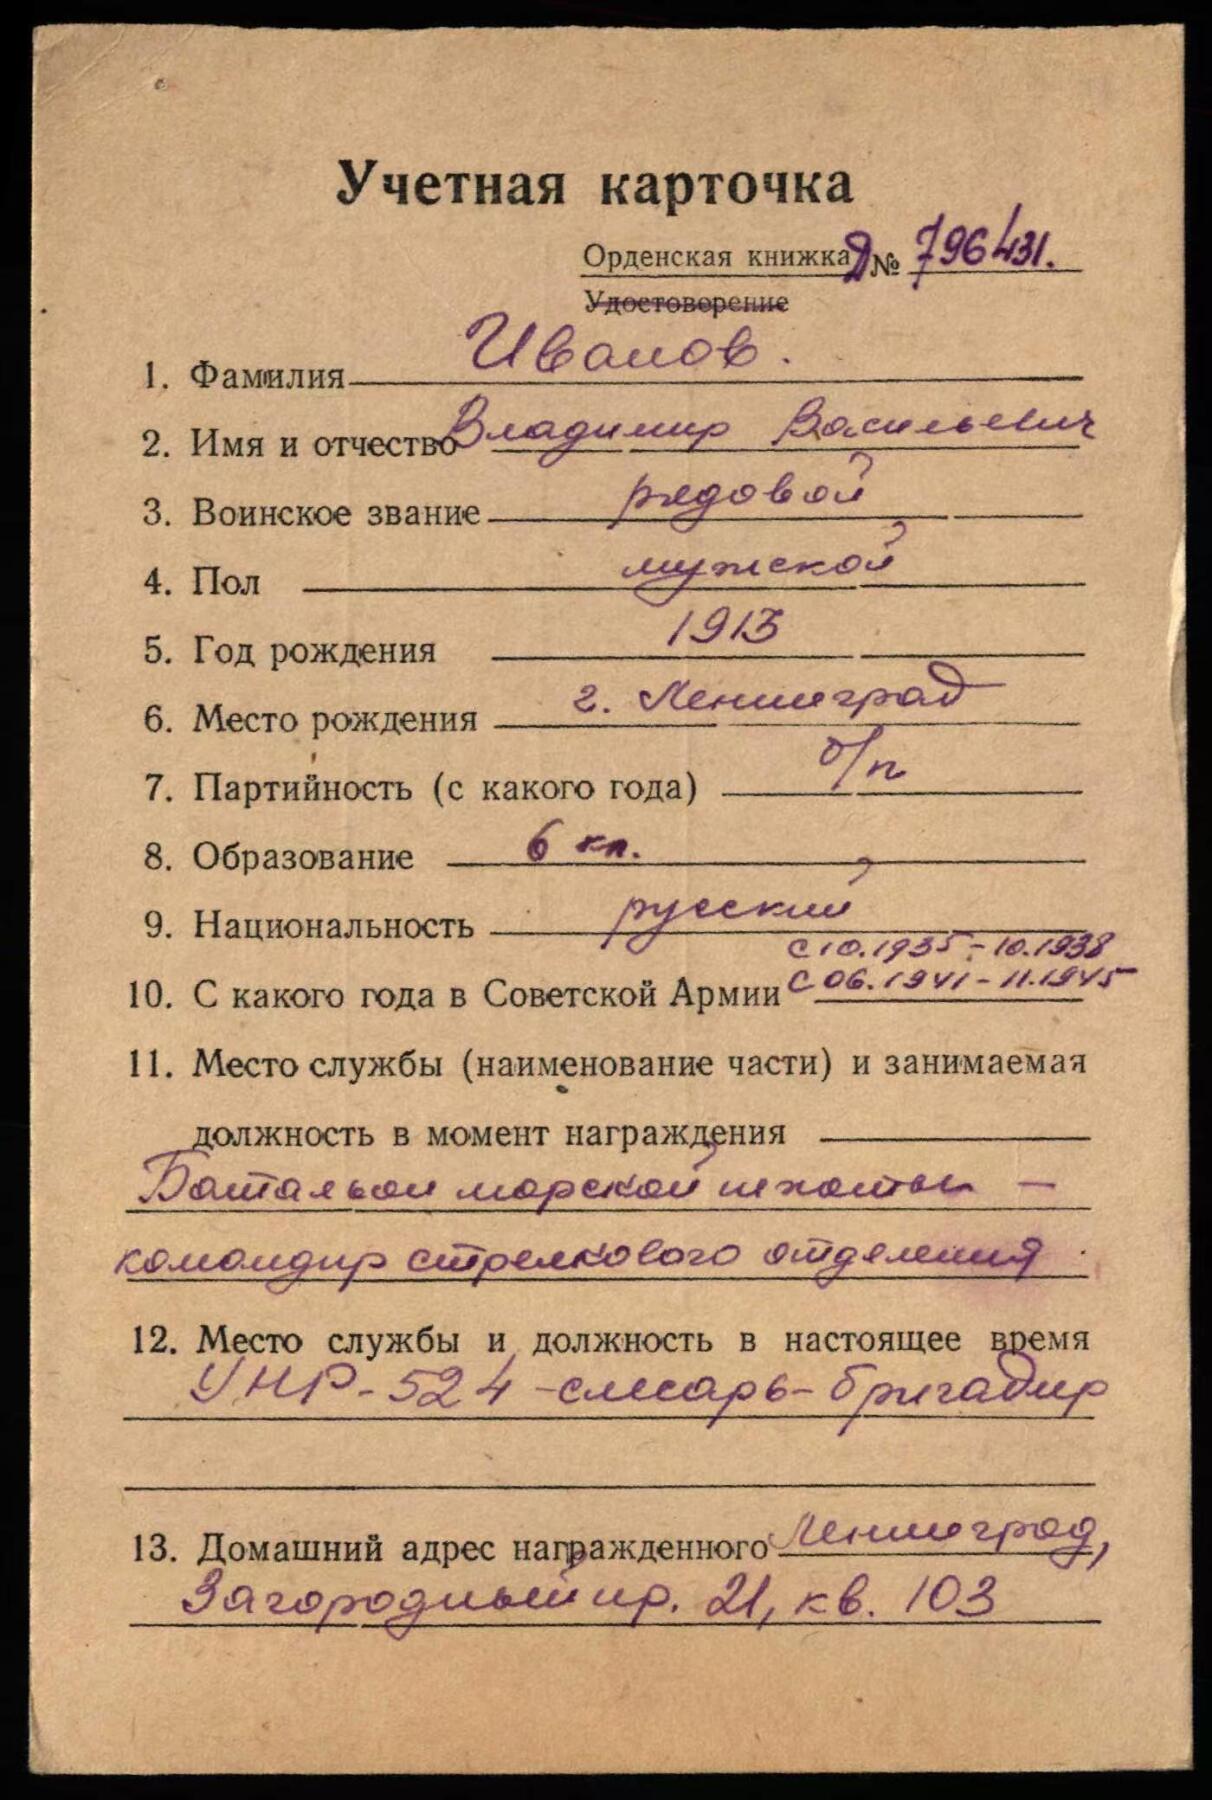 Учетная карточка
Орденская книжка Д № 796431.
Удостоверение
1. Фамилия Иванов.
2. Имя и отчество Владимир Васильевич
3. Воинское звание рядовой
4. Пол мужской
5. Год рождения 1913
6. Место рождения г. Ленинград
7. Партийность (с какого года) б/п
8. Образование 6 кл.
9. Национальность русский
с 10.1935 - 10.1938
10. С какого года в Советской Армии с 06.1941 - 11.1945
11. Место службы (наименование части) и занимаемая
должность в момент награждения
Батальон морской пехоты -
командир стрелкового отделения.
12. Место службы и должность в настоящее время
УНР-524 - слесарь - бригадир
13. Домашний адрес награжденного Ленинград,
Загородный пр. 21, кв. 103